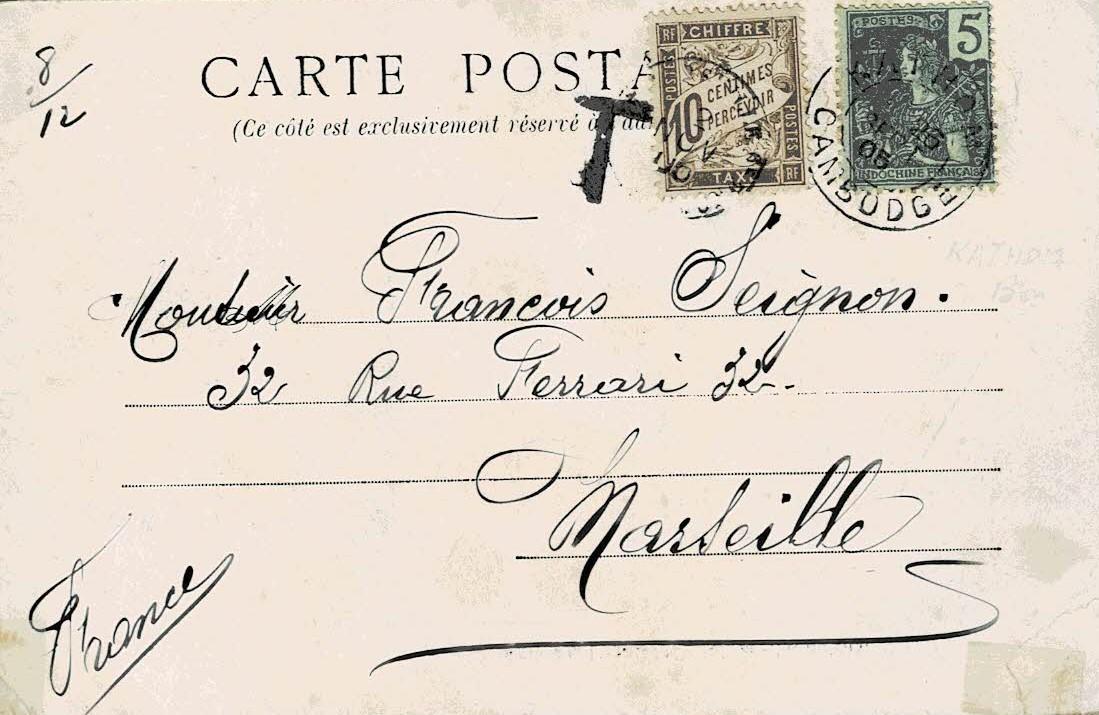 8/12
CARTE POSTA
(Ce côté est exclusivement réservé à l'ad
T
RF CHIFFRE
10 CENTIMES
PERCEVOIR
POSTES
TAXE RF
POSTES 5
INDOCHINE FRANÇAISE
05
CAMBODGE
François Seignon.
32 Rue Ferrari 32.
Marseille
France
KATHOM